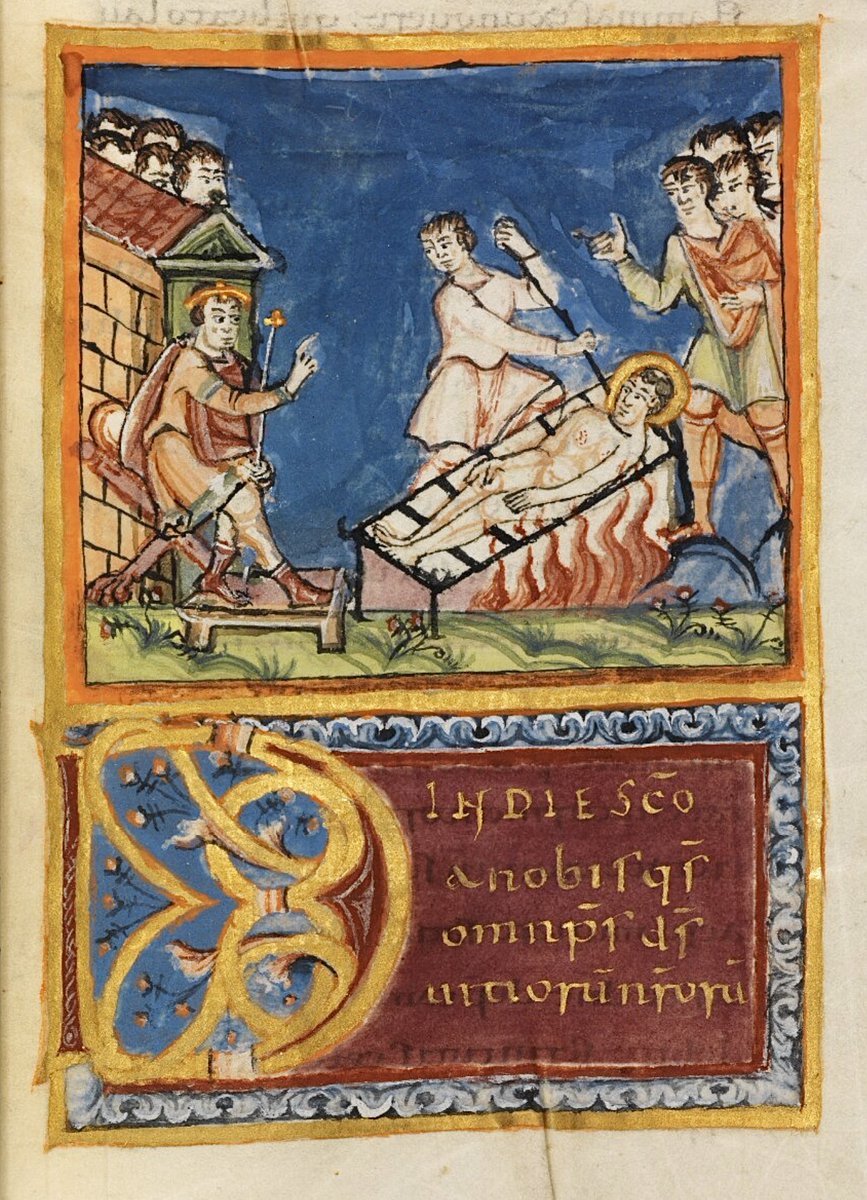 IN DIE SC̄O
Da nobis qs̄
omnip̄s ds̄
uitiorū nr̄orū